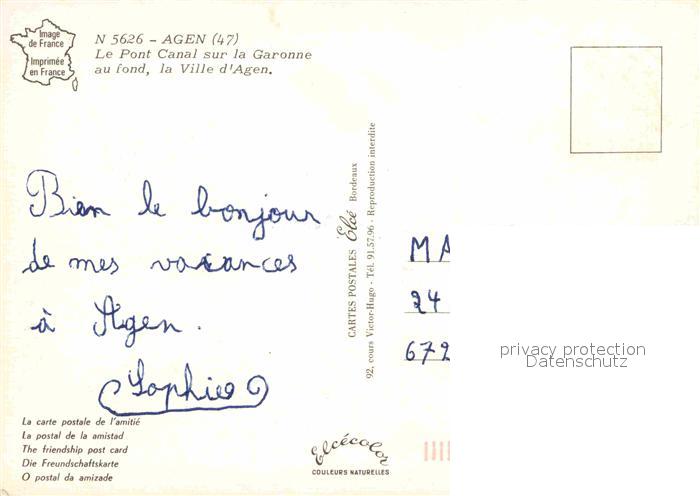 Image
de France
Imprimée
en France
N 5626 - AGEN (47)
Le Pont Canal sur la Garonne
au fond, la Ville d'Agen.
Bien le bonjour
de mes vacances
à Agen.
Sophie
La carte postale de l'amitié
La postal de la amistad
The friendship post card
Die Freundschaftskarte
O postal da amizade
CARTES POSTALES Elcé Bordeaux
92, cours Victor-Hugo - Tél. 91.57.96 - Reproduction interdite
Elcécolor
COULEURS NATURELLES
MA
24
672
privacy protection
Datenschutz